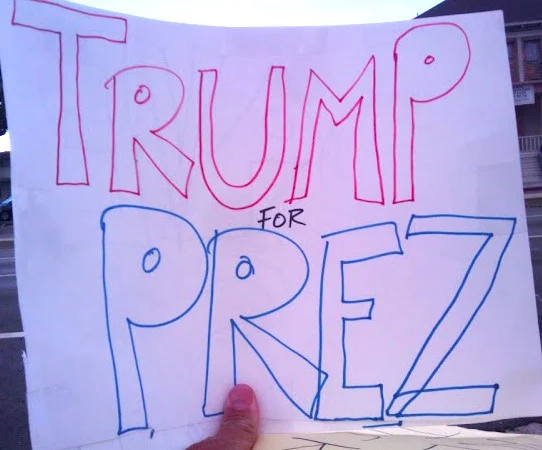 TRUMP
FOR
PREZ